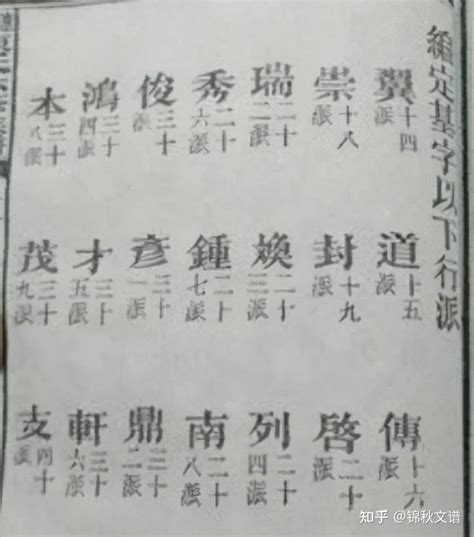 編定基字以下行派
翼十四派 道十五派 傳十六派
崇十八派 封十九派 啓二十派
瑞二十二派 煥二十三派 列二十四派
秀二十六派 鍾二十七派 南二十八派
俊三十派 彥三十一派 鼎三十二派
鴻三十四派 才三十五派 軒三十六派
本三十八派 茂三十九派 支四十派
知乎 @锦秋文谱